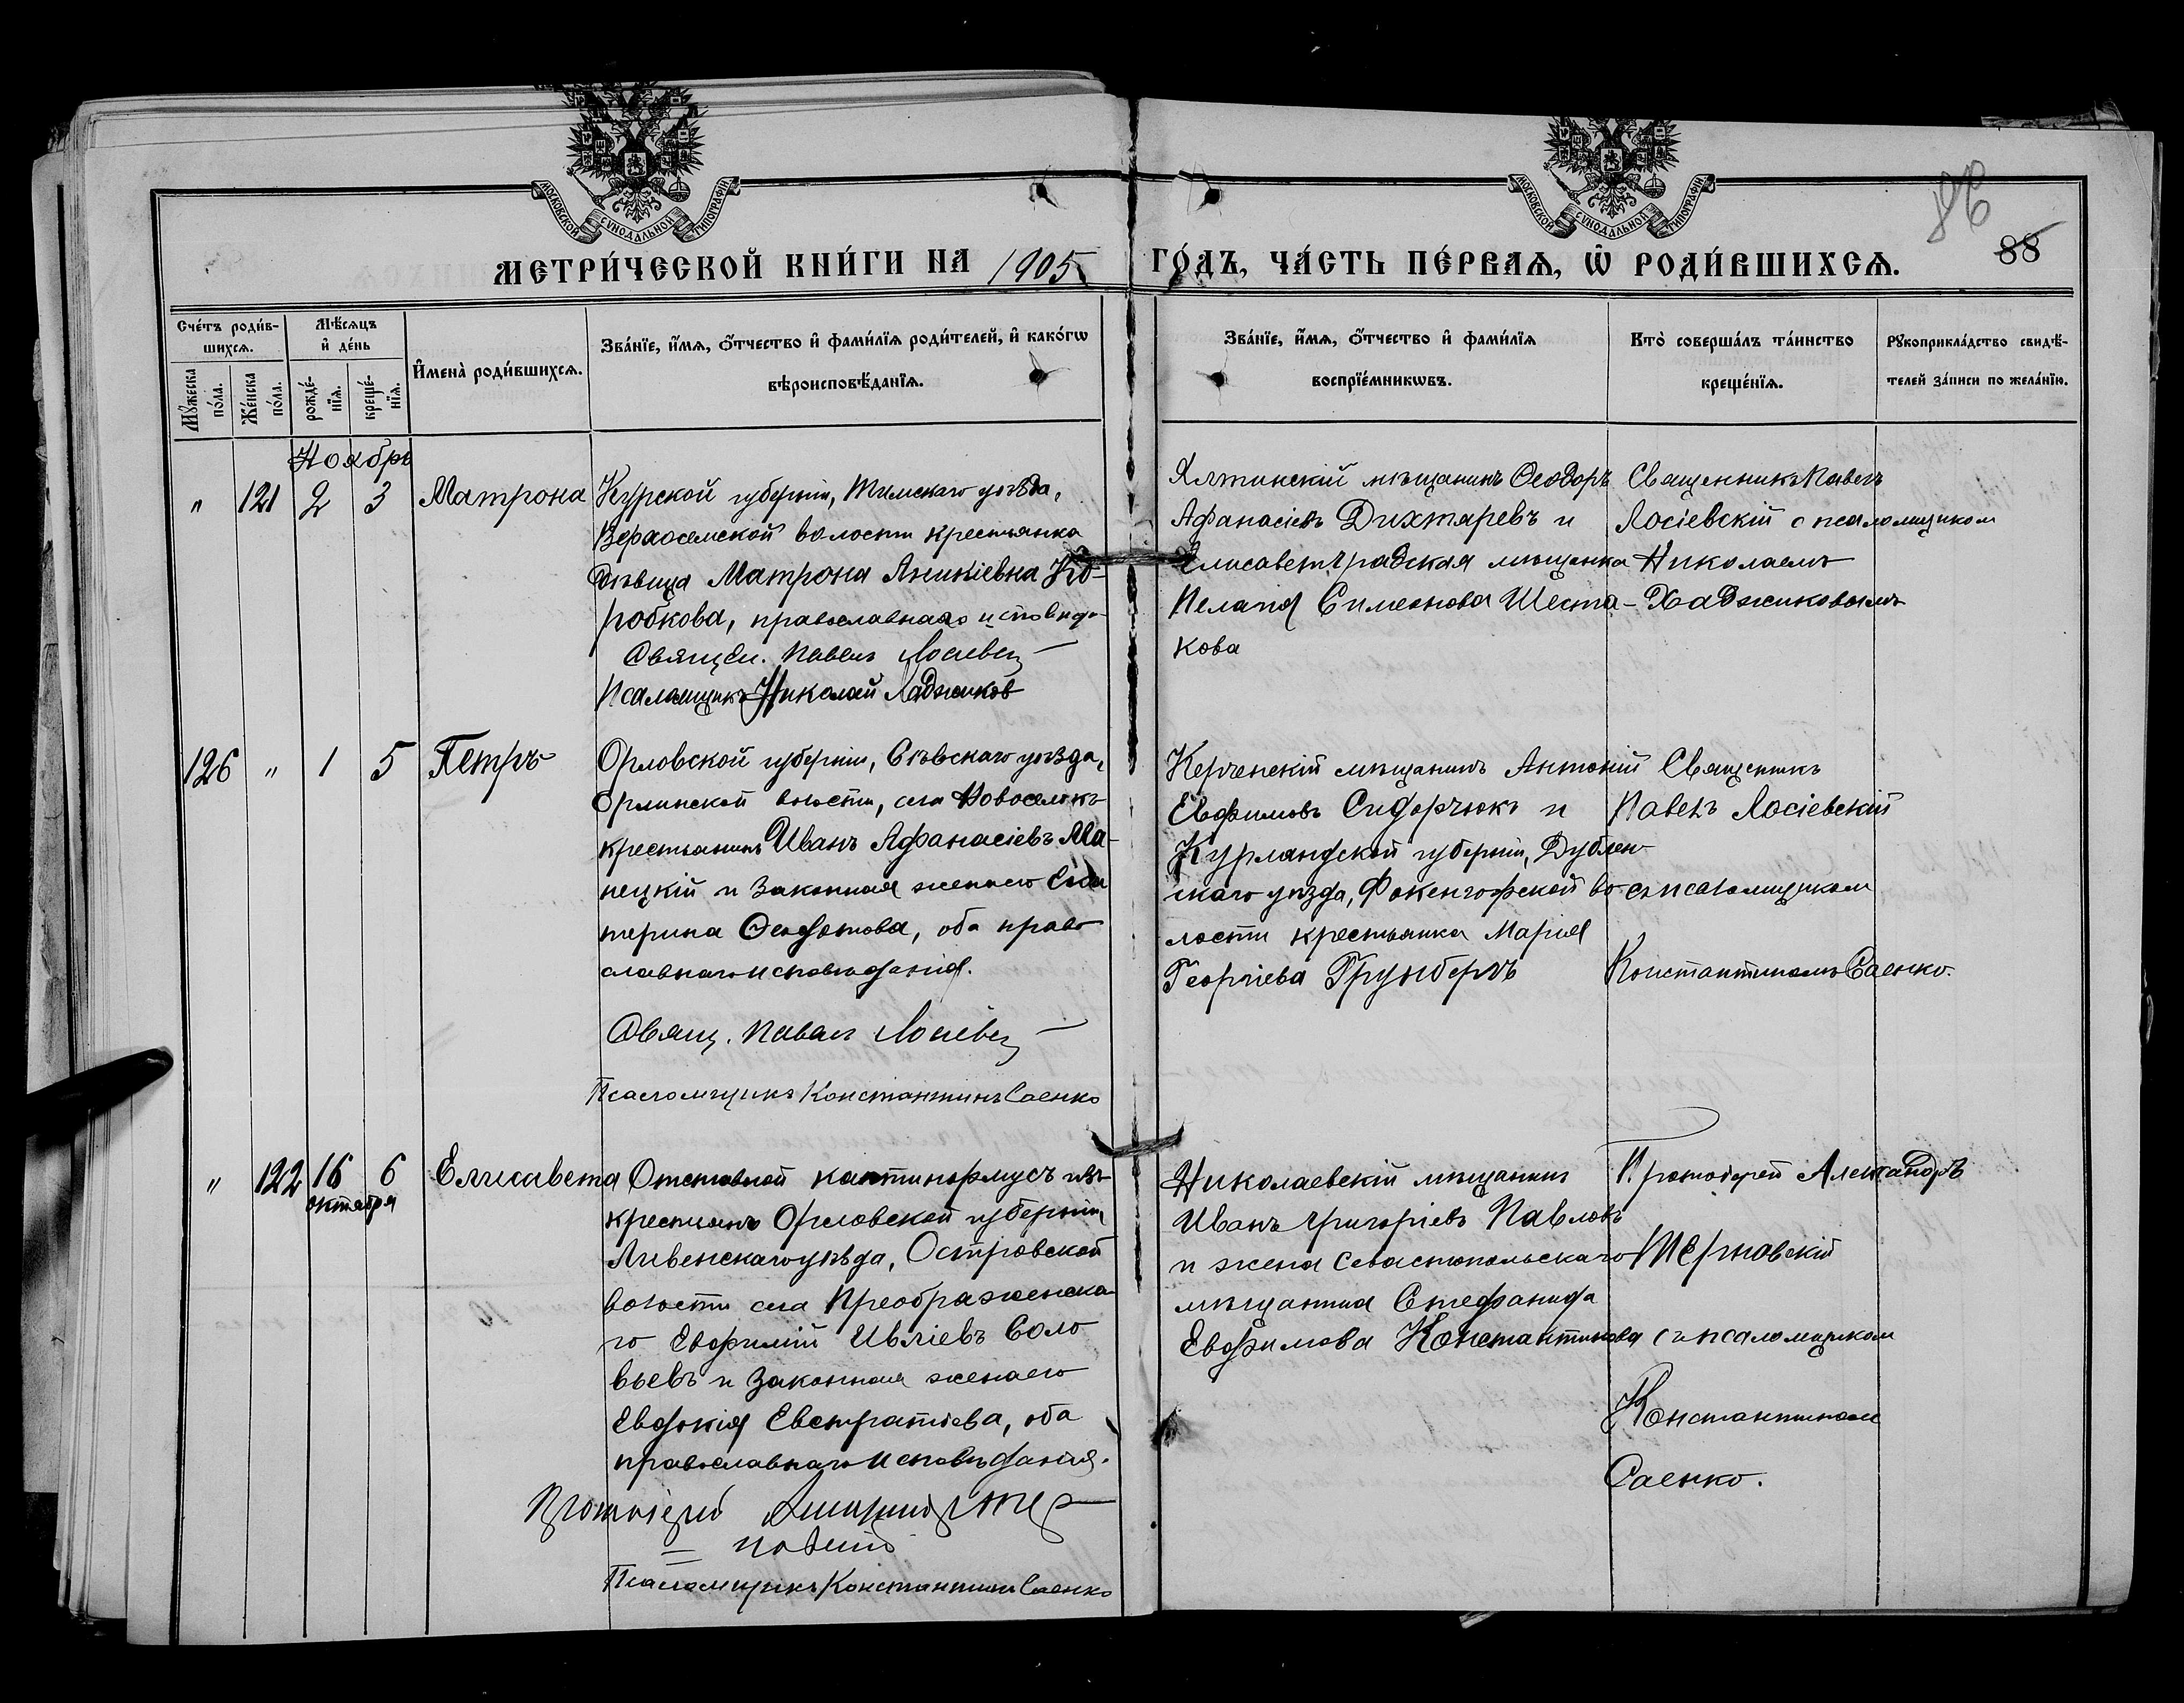 МОСКОВСКОЙ СѴНОДАЛЬНОЙ ТИПОГРАФІИ
МОСКОВСКОЙ СѴНОДАЛЬНОЙ ТИПОГРАФІИ
86
88
МЕТРИ́ЧЕСКОЙ КНИ́ГИ НА 1905 ГО́ДЪ, ЧА́СТЬ ПЕ́РВАЯ, Ѡ҆ РОДИ́ВШИХСЯ.
Сче́тъ роди́в-
шихся.
Мꙋ́жеска по́ла.
Же́нска по́ла.
Мѣ́сяцъ и҆ де́нь
рожде́-нїя.
креще́-нїя.
И҆мена̀ роди́вшихся.
Зва́нїе, и҆́мя, ѻ҆́тчество и҆ фами́лїя роди́телей, и҆ како́гѡ
вѣроисповѣ́данїя.
Зва́нїе, и҆́мя, ѻ҆́тчество и҆ фами́лїя
воспрїе́мникѡвъ.
Кто̀ соверша́лъ та́инство
креще́нїя.
Рꙋкоприкла́дство свидѣ́-
телей за́писи по жела́нїю.
Ноябрь
" 121 2 3 Матрона
Курской губерніи, Тимскаго уѣзда,
Верхосемской волости крестьянка
дѣвица Матрона Аникіевна Ко-
робкова, православнаго исповѣда-
Священ. Павелъ Лосіевск
Псаломщикъ Николай Хаджиковъ
Ялтинскій мѣщанинъ Ѳеодоръ
Афанасіевъ Дихтаревъ и
Елисаветградская мѣщанка
Пелагія Симеонова Шеста-
кова
Священникъ Павелъ
Лосіевскій с псаломщиком
Николаемъ
Хаджиковымъ
126 " 1 5 Петръ
Орловской губерніи, Сѣвскаго уѣзда,
Орлинской волости, села Новоселокъ
крестьянинъ Иванъ Афанасіевъ Ма-
нецкій и законная жена его Ека
терина Ѳеодотова, оба право
славнаго исповѣданія.
Свящ. Павелъ Лосіевск
Псаломщикъ Константинъ Саенко
Керченскій мѣщанинъ Антоній
Евфимовъ Сидорчюкъ и
Курляндской губерніи, Дублен-
скаго уѣзда, Фокенгофской во
лости крестьянка Марія
Георгіева Грунбергъ
Священникъ
Павелъ Лосіевскій
съ псаломщиком
Константиномъ Саенко.
" 122 16 6 Елисавета
октября
Отставной каптинармусъ изъ
крестьянъ Орловской губерніи,
Ливенскаго уѣзда, Островской
волости села Преображенска
го Евфимій Ивліевъ Соло
вьевъ и законная жена его
Евдокія Евстратіева, оба
православнаго исповѣданія.
Протоіерей Александръ Тер
новскій
Псаломщикъ Константинъ Саенко
Николаевскій мѣщанинъ
Иванъ Григоріевъ Павловъ
и жена Севастопольскаго
мѣщанина Стефанида
Евфимова Константинова
Протоіерей Александръ
Терновскій
съ псаломщиком
Константином
Саенко.